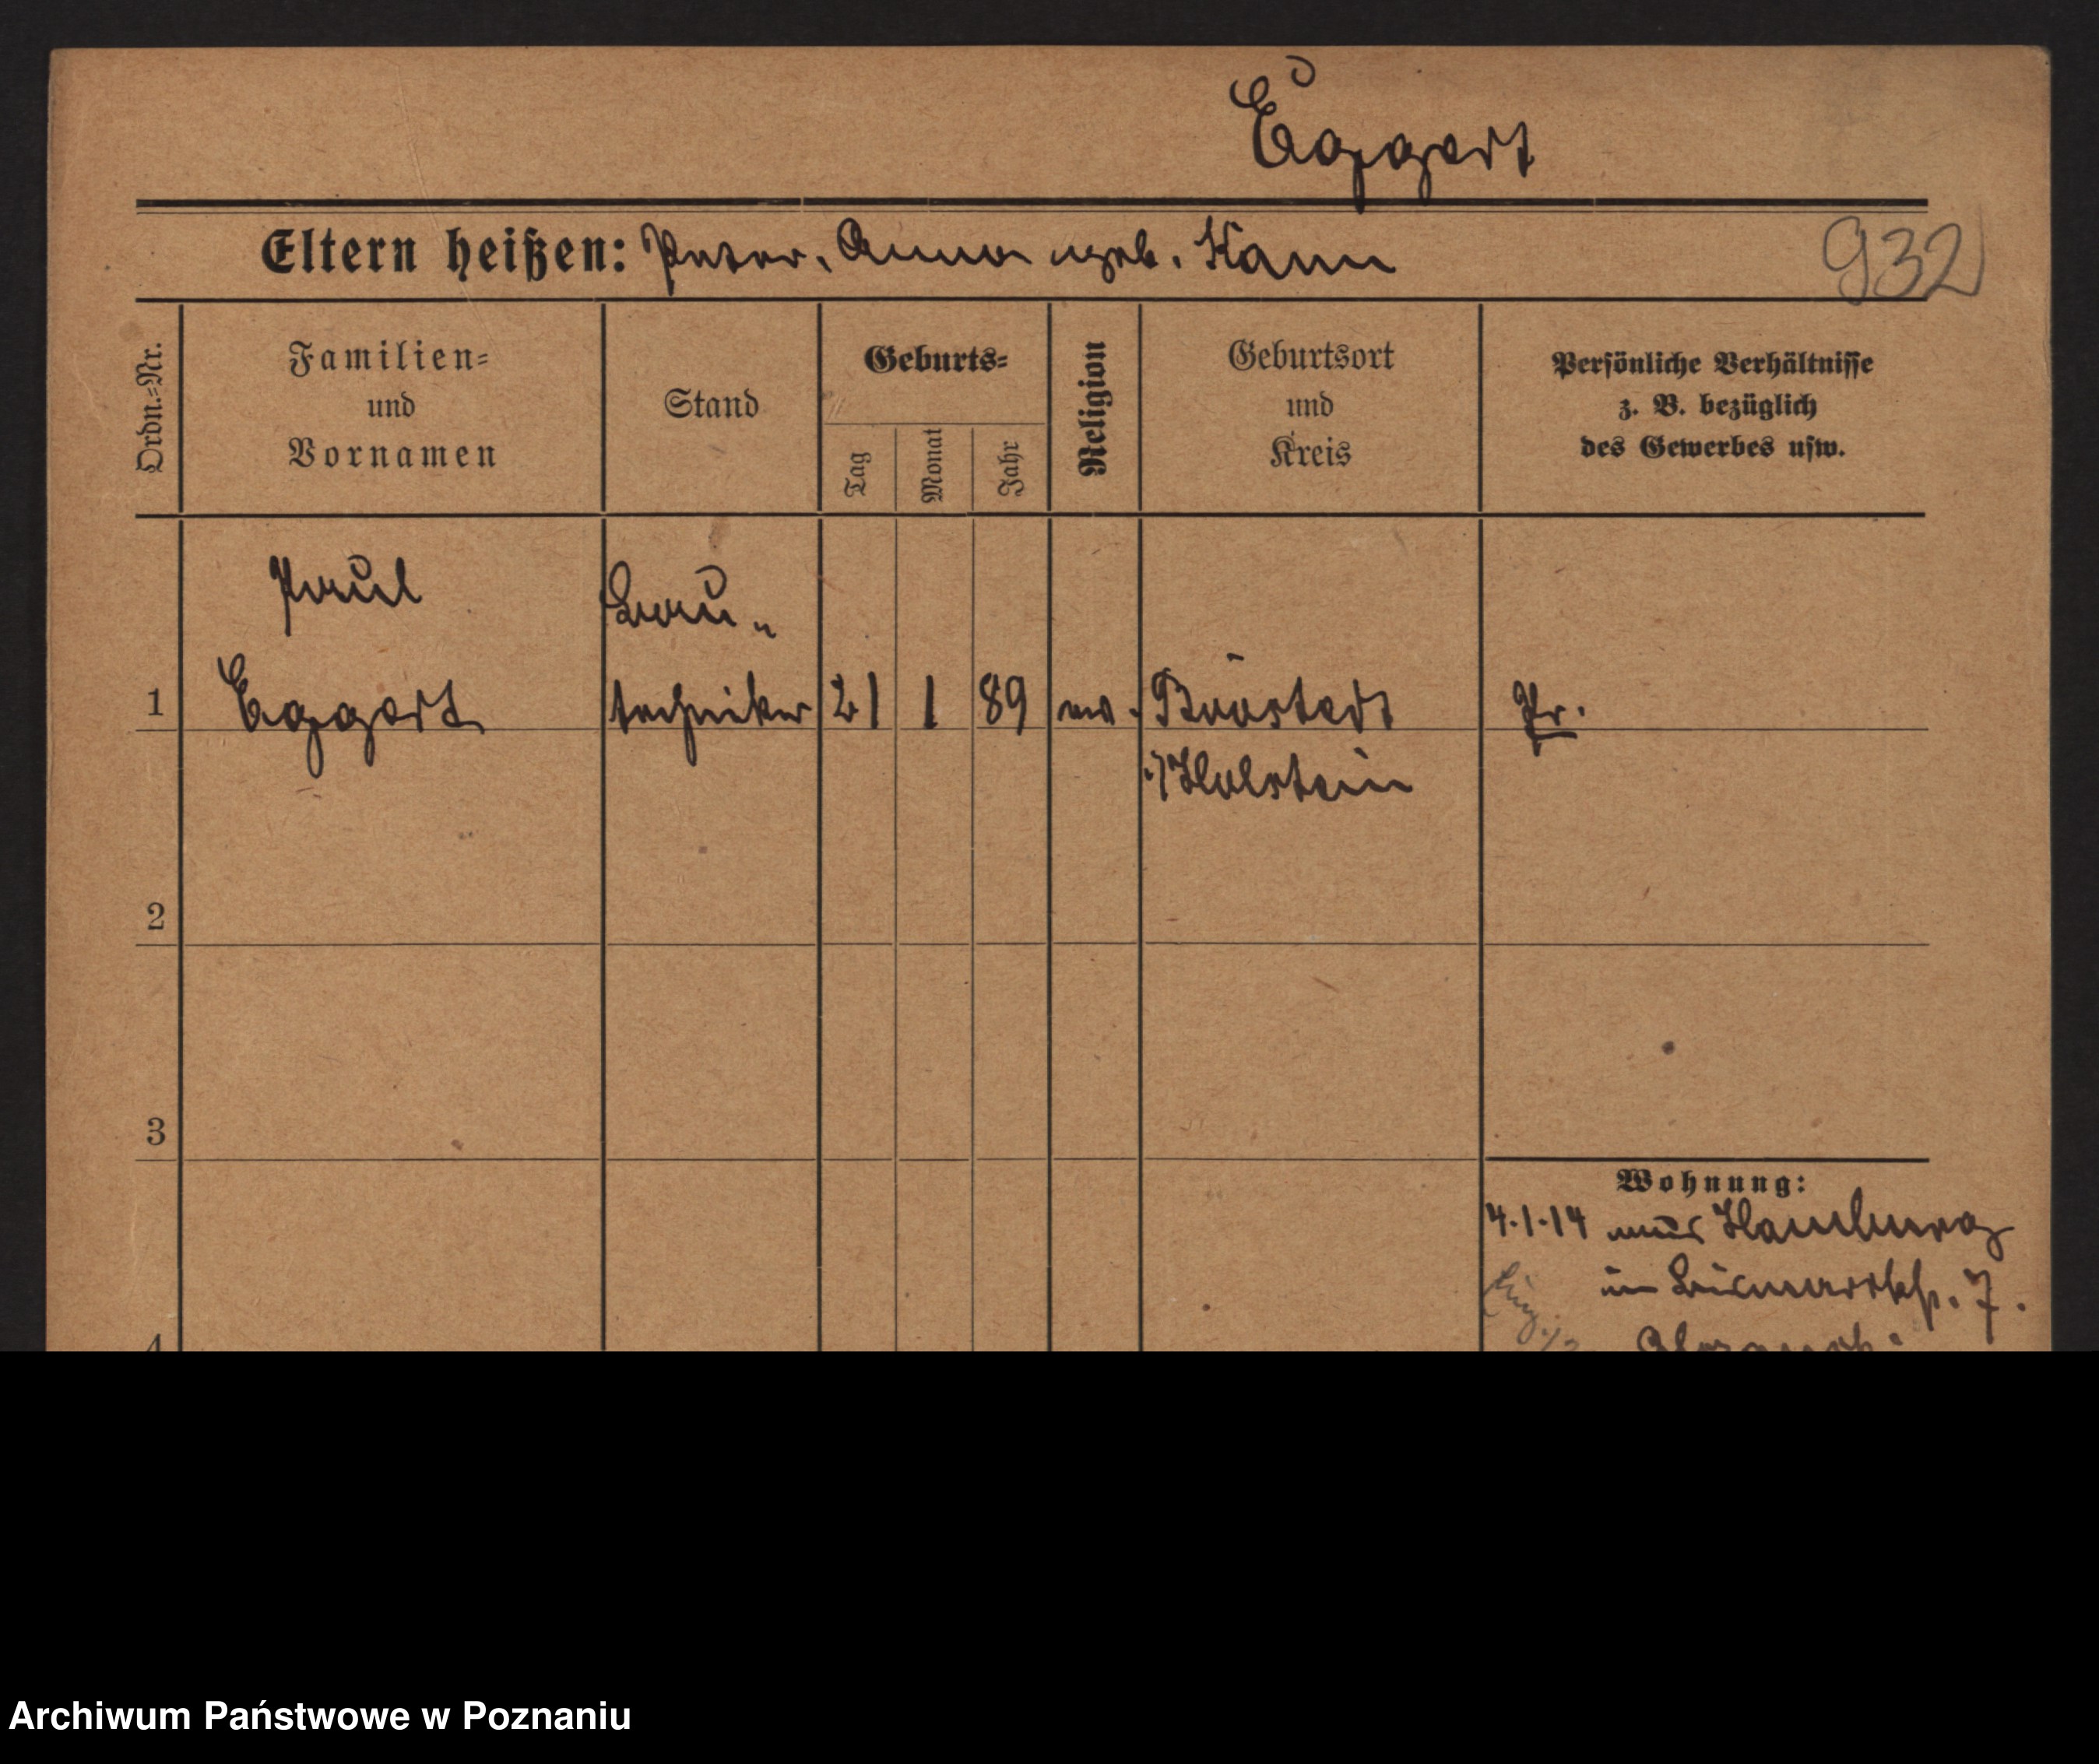 Eggert
Eltern heißen: Peter, Anna geb. Kann
932
Ordn.=Nr.
Familien=
und
Vornamen
Stand
Geburts=
Tag
Monat
Jahr
Religion
Geburtsort
und
Kreis
Persönliche Verhältnisse
z. B. bezüglich
des Gewerbes usw.
Paul
Bau„
1 Eggert techniker 21 1 89 ev. Pr.
i/Holstein
2
3
Wohnung:
4.1.14 aus Hamburg
in Bismarckstr. 7.
4
Archiwum Państwowe w Poznaniu